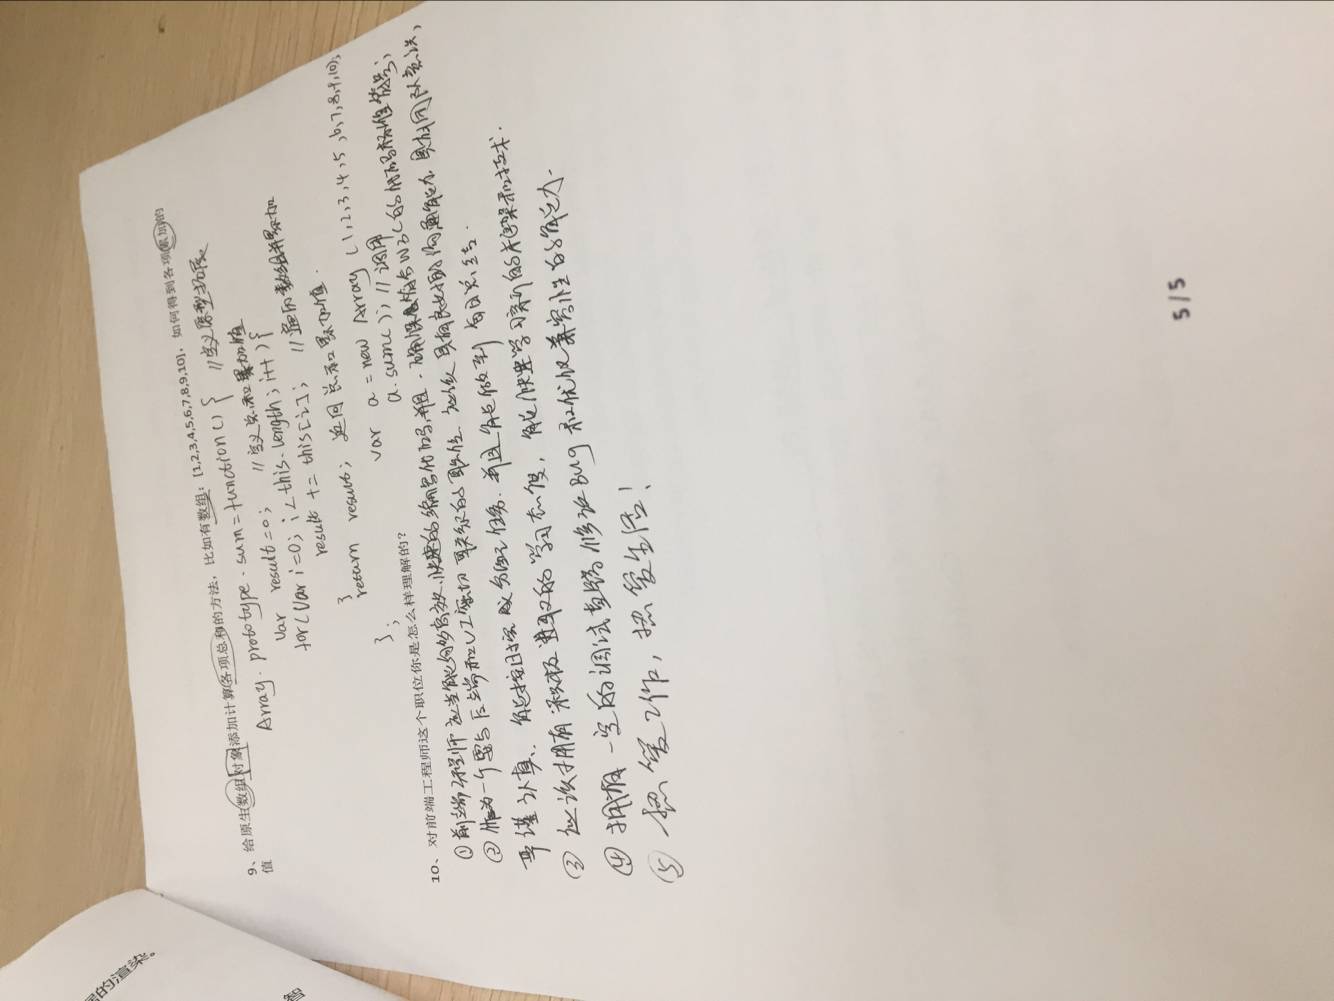 据的渲染。
9、给原生数组对象添加计算各项总和的方法，比如有数组：[1,2,3,4,5,6,7,8,9,10]，如何得到各项累加的
值
Array.prototype.sum=function(){ //定义原型拓展
var result=0; //定义总和累加值
for(var i=0; i<this.length; i++){
result += this[i]; //遍历数组并累加
}
return result; 返回总和累加值.
};
var a = new Array (1,2,3,4,5,6,7,8,9,10);
a.sum(); //调用
10、对前端工程师这个职位你是怎么样理解的？
①前端工程师应当能够高效、快速的编写代码,并且.确保符合W3C的代码标准符号;
②作为一个要与后端和UI密切联系的职位 应该具有良好的沟通能力 具有团队意识,
严谨认真. 能按时完成分配任务.并且能做到每日总结.
③应该拥有积极进取的学习态度, 能快速学习新的框架和技术.
④拥有一定的调试查错修改Bug和优化兼容性的能力.
⑤热爱工作,热爱生活!
5 / 5